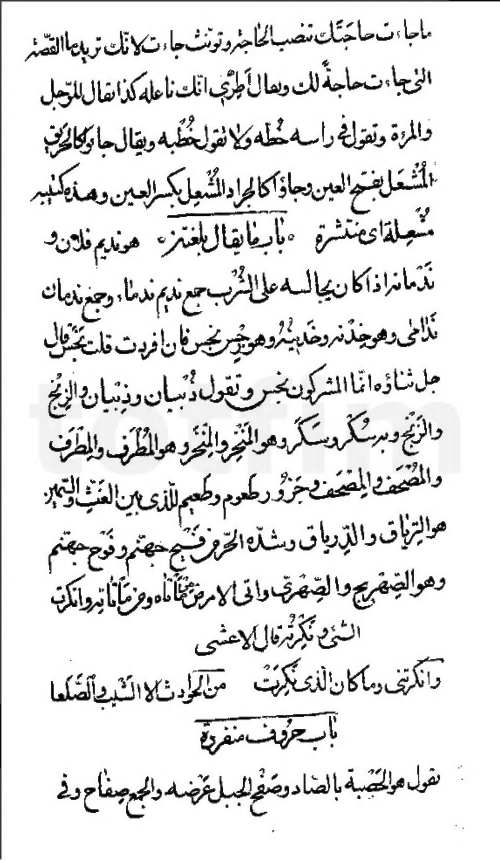 ما جاءت حاجتَك تنصب الحاجة وتونث جاءت لانك تريد ما القصّة
التى جاءت حاجةً لك ويقال أَطِرِّى انك ناعله كذا يقال للرّجل
والمرءة وتقول فى راسه خُطّه ولا تقول خُطْبه ويقال جاؤا كالحريق
المُشْعَل بفتح العين وجاؤا كالجراد المُشْعِل بكسر العين وهذه كتيبه
مُشْعِلة اى منتشرة باب ما يقال بلغتين هو نديم فلان و
نَدْمانه اذا كان يجالسه على الشُرْب جمع نديم ندماء وجمع ندمان
نَدَامٰى وهو خِدْنه وخَدِينُه وهو رِجْس نجس فان افردت قلت نَجَس قال
جل ثناؤه انّما المشركون نجس وتقول ذُبْيان وذِبْيان والزِنْج
والزَنْج وبه سُكْر وسَكَر وهو المَنْخِر والمِنْخِر وهو المُطْرَف والمِطْرَف
والمُصْحَف والمِصْحَف وجَزُور طعوم وطعيم للّذى بين الغَثّ والسّمين
هو التِرْياق والدِّرياق وشدّه الحرّ من فَيْح جهنّم وفَوْح جهنّم
وهو الصِهْريج والصِهْرىّ واتى الامر من مَأْتاه ومن مَأْتاته وانكرت
الشئ ونَكِرْتُه قال الاعشى
وَانكرتنى وما كان الذى نَكِرَتْ من الحوادث الا الشَيْبَ والصَلَعا
باب حروف منفردة
تقول هو الحَصْبة بالصاد وصَفْح الجبل عَرْضه والجمع صِفاح وفى